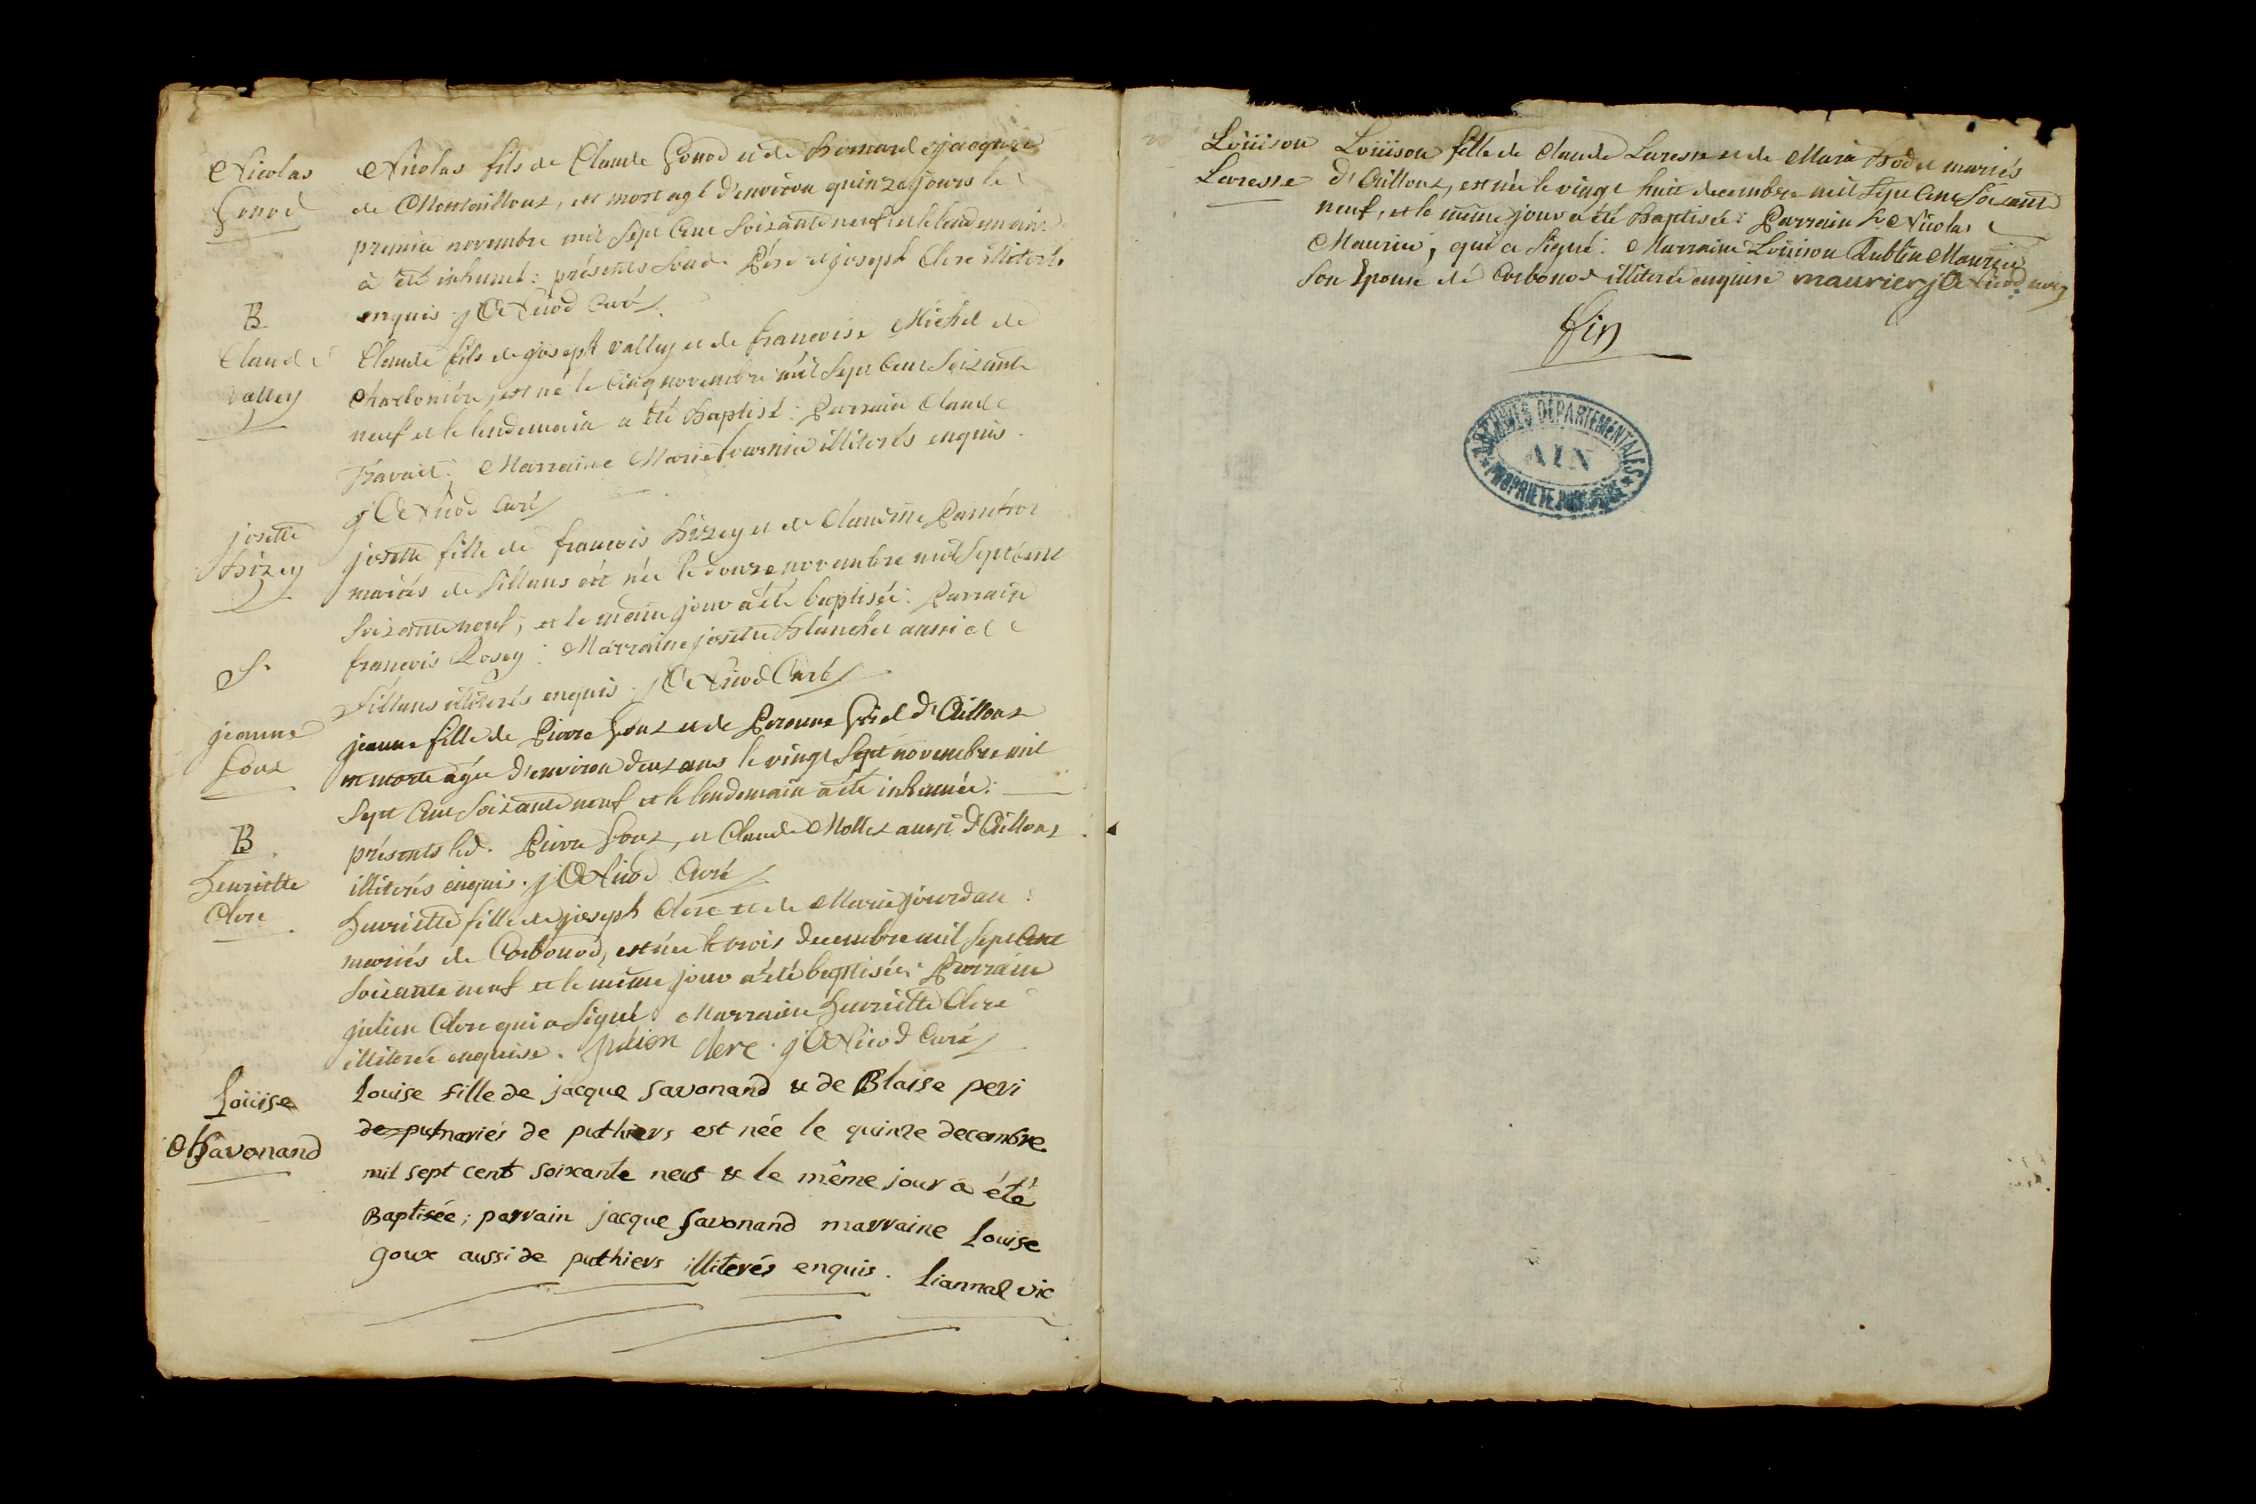 Nicolas
Gonod
Nicolas fils de Claude Gonod et de Bernarde jacquin
de Montaillour, est mort agé d'environ quinze jours le
premier novembre mil Sept Cent Soixante neuf et le lendemain
a été inhumé: présents Père et joseph Clerc illiterés
enquis. Nicod Curé
B
Claude
Valley
Claude fils de joseph Valley et de francoise Michel de
est né le Cinq novembre mil Sept Cent Soixante
neuf et le lendemain a été Baptisé: Parrain Claude
Travail: Marraine Marie fournier illiterés enquis.
Nicod Curé
josette
Bizey
josette fille de francois Bizey et de Claudine
mariés de Sillans est née le douze novembre mil Sept Cent
Soixante neuf, et le meme jour a été baptisée: Parrain
francois Rosay: Marraine josette Blanchet aussi de
Sillans illiterés enquis. Nicod Curé
S.
jeanne
Goux
jeanne fille de Pierre Goux et de Peronne d'Aillouz
est morte agée d'environ deux ans le vingt Sept novembre mil
Sept Cent Soixante neuf et le lendemain a été inhumée:
présents led. Pierre Goux, et Claude Mollex aussi d'Aillouz
illiterés enquis. Nicod Curé
B
henriette
Clerc
henriette fille de joseph Clerc et de Marie jourdan
mariés de Corbonod, est née le trois decembre mil Sept Cent
Soixante neuf et le même jour a été baptisée: Parrain
julien Clerc qui a Signé: Marraine henriette Clerc
illiterée enquise. julien clerc. Nicod Curé
Loüise
Savonand
Louise fille de jacque Savonand & de Blaise peri
de put mariés de puthiers est née le quinze decembre
mil sept cent soixante neuf & le même jour a été
Baptisée; parrain jacque Savonand marraine Louise
goux aussi de puthiers illiterés enquis. Liannal vic
Loüison
Levesse
Loüison fille de Claude Levesse et de Marie Bodet mariés
d'Aillouz, est née le vingt huit decembre mil Sept Cent Soixante
neuf, et le même jour a été Baptisée: Parrain Sr Nicolas
Maurier, qui a Signé: Marraine Loüison Maurier
Son Epouse de Corbonod illiterée enquise maurier Nicod curé
fin
ARCHIVES DÉPARTEMENTALES
AIN
PROPRIÉTÉ PUBLIQUE